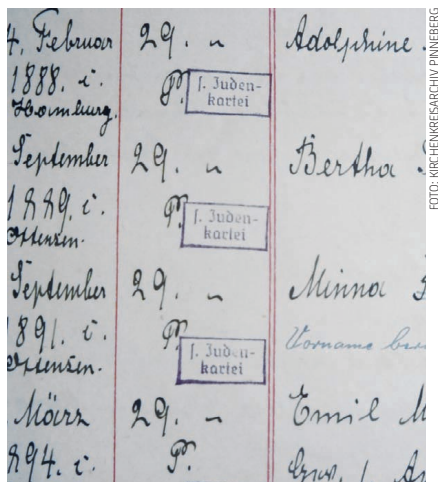 4. Februar 29. " Adolphine
1888. i. P. s. Juden-
kartei
Hamburg.
September 29. " Bertha
1889. i. P. s. Juden-
kartei
Ottensen.
September 29. " Minna
1891. i. P. Vorname
s. Juden-
kartei
Ottensen.
März 29. " Emil M
894. i. P.
FOTO: KIRCHENKREISARCHIV PINNEBERG